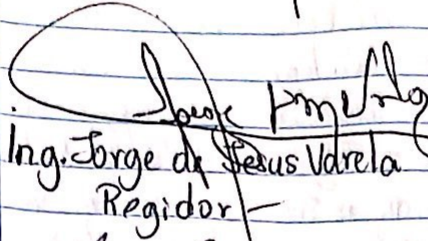 Ing. Jorge de Jesus Varela
Regidor